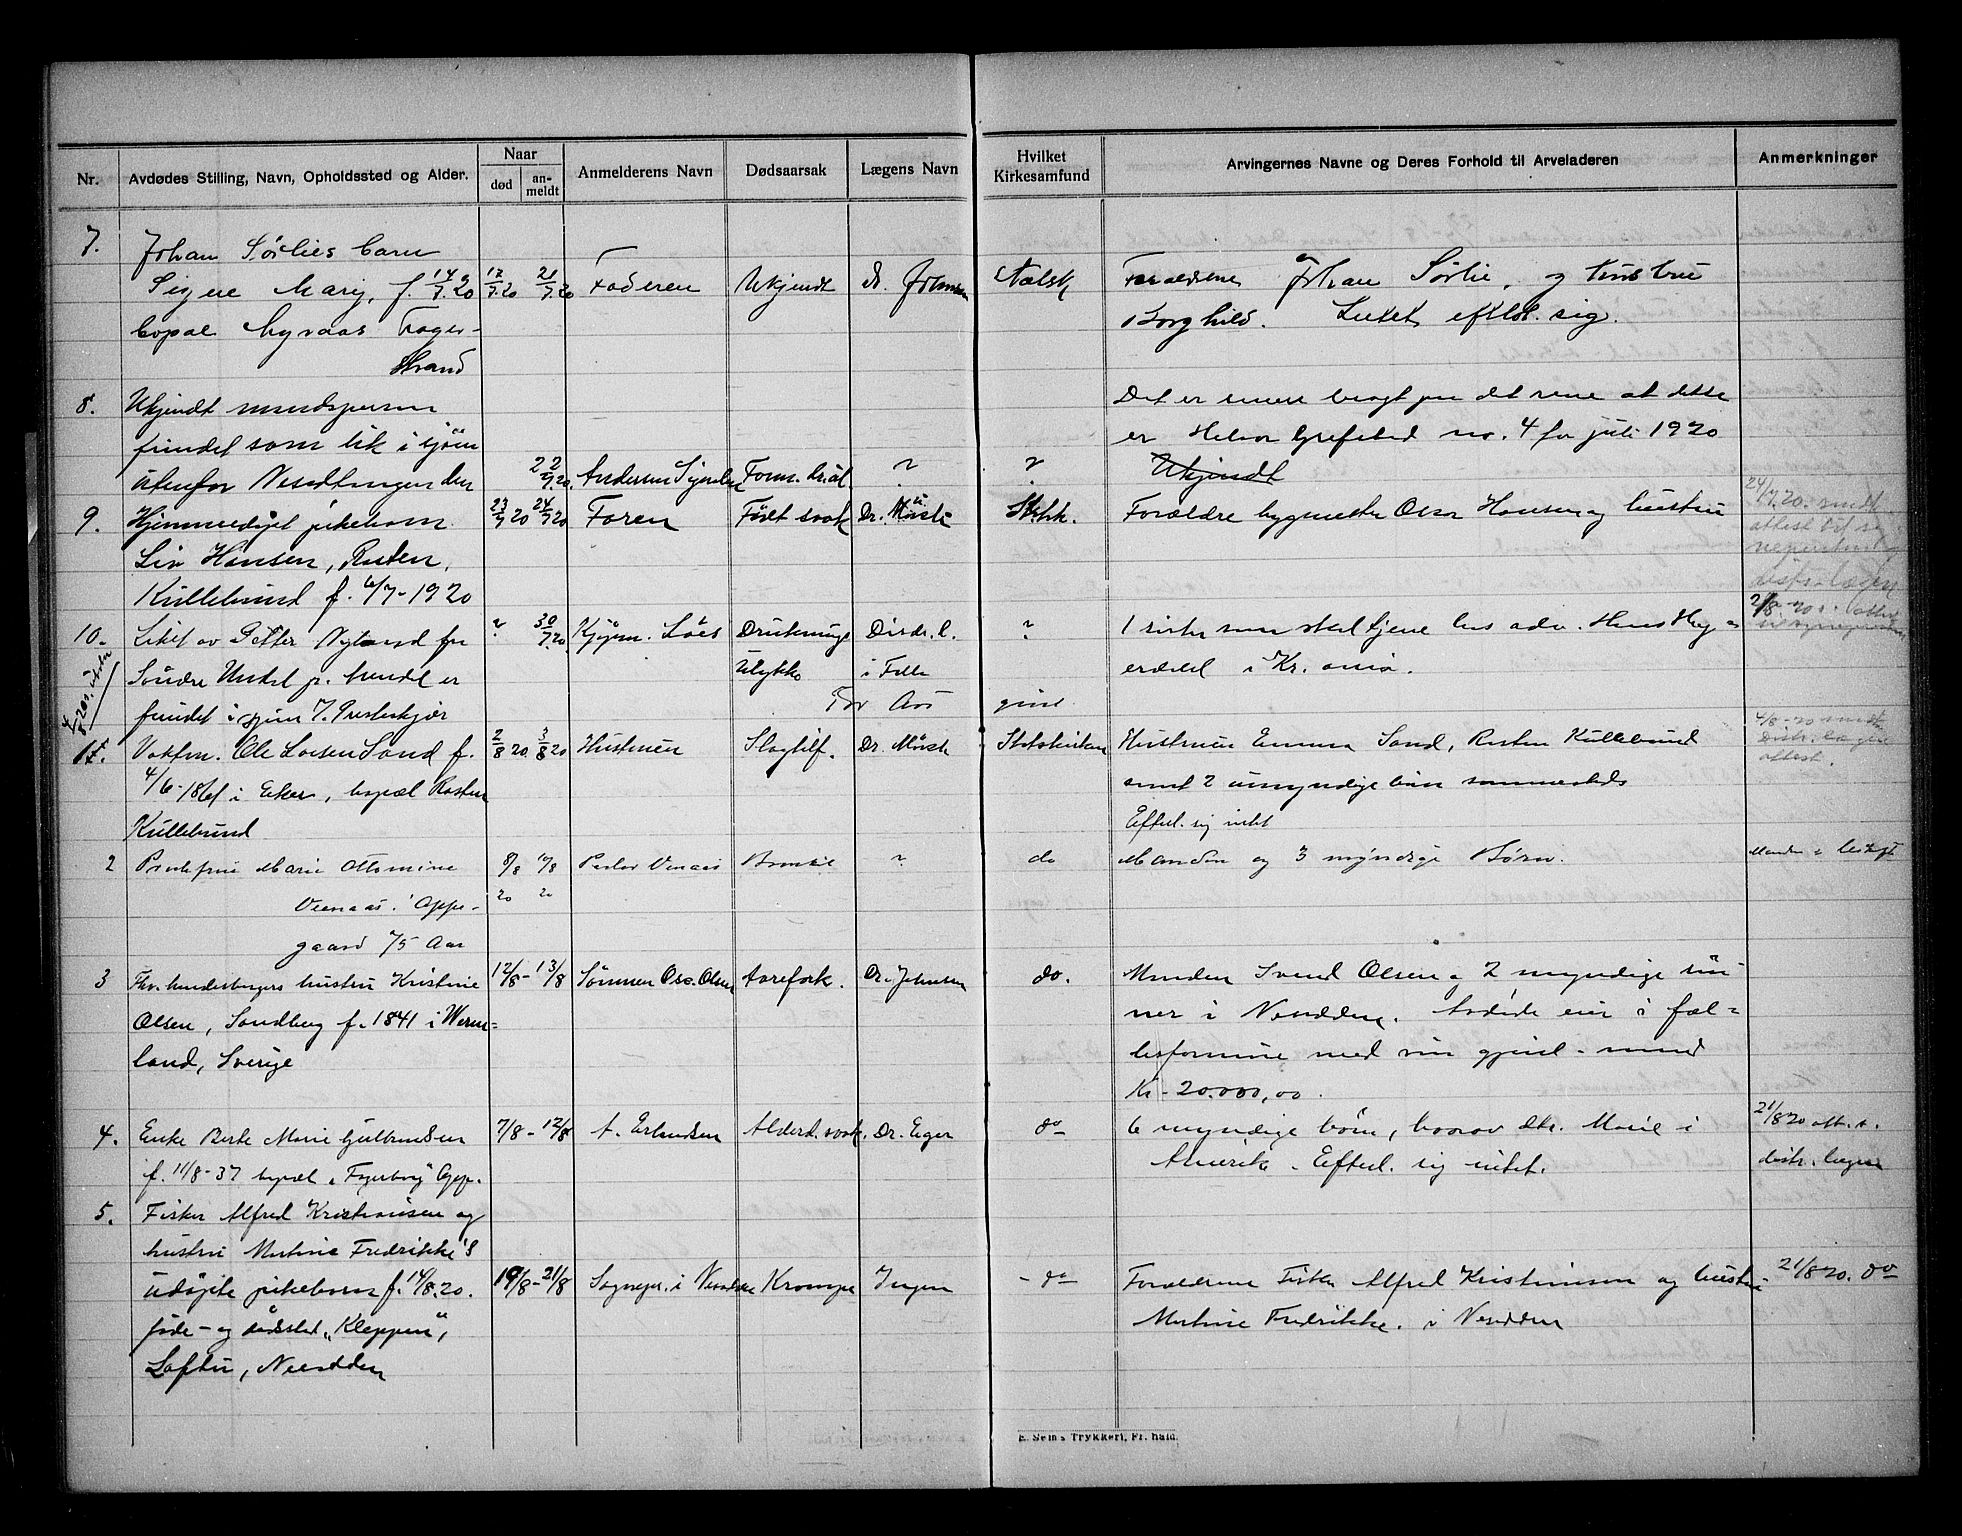 Nr.
Avdødes Stilling, Navn, Opholdssted og Alder.
Naar
død
an-
meldt
Anmelderens Navn
Dødsaarsak
Lægens Navn
Hvilket
Kirkesamfund
Arvingernes Navne og Deres Forhold til Arveladeren
Anmerkninger
7.
Johan Sørlies barn
Signe Marij, f. 14/7.20
bopæl Myraas Fager-
strand
17/7.20
21/7.20
Faderen
Ukjendt
dr. Johnsen
Forældrene Johan Sørlie, og hustru
Borghild. Intet efterl. sig.
8.
Ukjendt mandsperson
fundet som lik i sjøen
utenfor Nesodtangen den
22/7.20.
?
?
Det er senere bragt paa det rene at dette
er no. 4 for juli 1920
Ukjendt
9.
Hjemmedøpt pikebarn
Liv Hansen, Rasten,
Kullebund f. 6/7-1920
23/7 20
24/7 20
Faren
Født svak
Dr. Mørch
Statsk.
Forældre bygmester Olav Hansen og hustru
24/7.20. sendt
attest til
distr. lægen
10.
Liket av Petter Nyland fra
Søndre
fundet i sjøen
?
30/7.20
Druknings
Ulykke
Distr. l.
i
?
1 søster som skal tjene hos adv.
i Kr.ania.
For Aos gind
1.
Vaktm. Ole Larsen Sand f.
4/6-1861 i Eker, bopæl Rasten
Kullebund
2/8 20
3/8 20
Hustruen
Slagtilf.
Dr. Mørch
Statskirken
Hustruen Emma Sand, Rasten Kullebund
samt 2 umyndige barn sammesteds
Efterl. sig intet
4/8-20 sendt
Distr. lægen
attest.
2
Marie Ottomine
Venaas i Oppe-
gaard 75 Aar
8/8
20
10/8
20
Pastor Venaas
?
do
Manden og 3 myndige Børn.
3
hustru Kristine
Olsen, Sandberg f. 1841 i Werm-
land, Sverige
12/8-13/8
Sønnen Osc. Olsen
Aarefork.
Dr. Johnsen
do.
Manden Svend Olsen og 2 myndige søn-
ner i Nesodden. Avdøde eier i fæl-
lesformue med sin gjenl. mand
Kr. 20.000,00.
4.
Enke Berte Marie Gulbrandsen
f. 11/8-37 bopæl „Fagerborg" Opp.
7/8-12/8
A. Erlandsen
Alderd. svak.
Dr. Eger
do
6 myndige børn, hvorav dtr. Marie i
Amerika. Efterl. sig intet.
21/8 20 att. t.
distr. lægen
5.
Fisker Alfred Kristiansen og
hustru Martine Fredrikke's
udøpte pikebarn f. 14/8.20.
føde- og dødssted „Kleppen",
Loftu, Nesodden
19/8-21/8
Sognepr. i Nesodden
Krampe
Ingen
- do
Forældrene Fisker Alfred Kristiansen og hustru
Martine Fredrikke. i Nesodden
21/8 20. do
E. Sem's Trykkeri, Fr.hald.